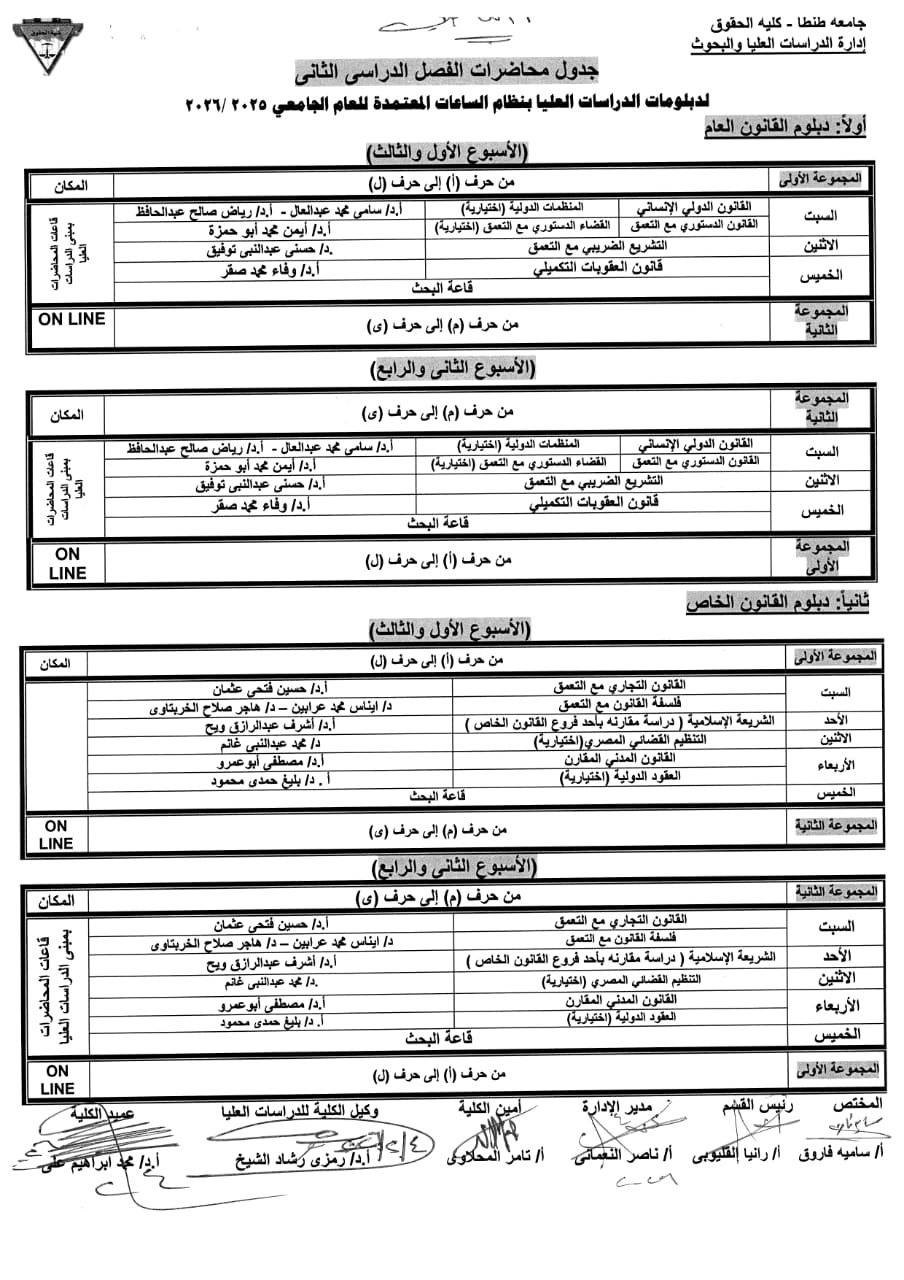 جامعه طنطا - كليه الحقوق
إدارة الدراسات العليا والبحوث
كلية الحقوق
جدول محاضرات الفصل الدراسى الثانى
لدبلومات الدراسات العليا بنظام الساعات المعتمدة للعام الجامعي ٢٠٢٥ /٢٠٢٦
أولاً: دبلوم القانون العام
(الأسبوع الأول والثالث)
المجموعة الأولى من حرف (أ) إلى حرف (ل) المكان
السبت القانون الدولي الإنساني المنظمات الدولية (اختيارية) أ.د/ سامى محمد عبدالعال - أ.د/ رياض صالح عبدالحافظ قاعات المحاضرات بمبنى الدراسات العليا
القانون الدستوري مع التعمق القضاء الدستوري مع التعمق (اختيارية) أ.د/ أيمن محمد أبو حمزة
الاثنين التشريع الضريبي مع التعمق د./ حسنى عبدالنبى توفيق
الخميس قانون العقوبات التكميلي أ.د/ وفاء محمد صقر
قاعة البحث
المجموعة الثانية من حرف (م) إلى حرف (ى) ON LINE
(الأسبوع الثانى والرابع)
المجموعة الثانية من حرف (م) إلى حرف (ى) المكان
السبت القانون الدولي الإنساني المنظمات الدولية (اختيارية) أ.د/ سامى محمد عبدالعال - أ.د/ رياض صالح عبدالحافظ قاعات المحاضرات بمبنى الدراسات العليا
القانون الدستوري مع التعمق القضاء الدستوري مع التعمق (اختيارية) أ.د/ أيمن محمد أبو حمزة
الاثنين التشريع الضريبي مع التعمق د./ حسنى عبدالنبى توفيق
الخميس قانون العقوبات التكميلي أ.د/ وفاء محمد صقر
قاعة البحث
المجموعة الأولى من حرف (أ) إلى حرف (ل) ON LINE
ثانياً: دبلوم القانون الخاص
(الأسبوع الأول والثالث)
المجموعة الأولى من حرف (أ) إلى حرف (ل) المكان
السبت القانون التجاري مع التعمق أ.د/ حسين فتحى عثمان
فلسفة القانون مع التعمق د/ ايناس محمد عرابين – د/ هاجر صلاح الخربتاوى
الأحد الشريعة الإسلامية ( دراسة مقارنه بأحد فروع القانون الخاص ) أ.د/ أشرف عبدالرازق ويح
الاثنين التنظيم القضائي المصري(اختيارية) د/ محمد عبدالنبى غانم
الأربعاء القانون المدني المقارن أ.د/ مصطفى أبوعمرو
العقود الدولية (اختيارية) أ. د/ بليغ حمدى محمود
الخميس قاعة البحث
المجموعة الثانية من حرف (م) إلى حرف (ى) ON LINE
(الأسبوع الثانى والرابع)
المجموعة الثانية من حرف (م) إلى حرف (ى) المكان
السبت القانون التجاري مع التعمق أ.د/ حسين فتحى عثمان قاعات المحاضرات بمبنى الدراسات العليا
فلسفة القانون مع التعمق د/ ايناس محمد عرابين – د/ هاجر صلاح الخربتاوى
الأحد الشريعة الإسلامية ( دراسة مقارنه بأحد فروع القانون الخاص ) أ.د/ أشرف عبدالرازق ويح
الاثنين التنظيم القضائي المصري (اختيارية) د/ محمد عبدالنبى غانم
الأربعاء القانون المدني المقارن أ.د/ مصطفى أبوعمرو
العقود الدولية (اختيارية) أ. د/ بليغ حمدى محمود
الخميس قاعة البحث
المجموعة الأولى من حرف (أ) إلى حرف (ل) ON LINE
المختص رئيس القسم مدير الإدارة أمين الكلية وكيل الكلية للدراسات العليا عميد الكلية
أ/ ساميه فاروق أ/ رانيا القليوبى أ/ ناصر النعمانى أ/ تامر المحلاوى أ.د/ رمزى رشاد الشيخ أ.د/ محمد ابراهيم على